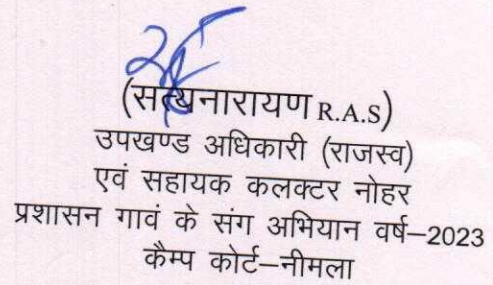 (सत्यनारायण R.A.S)
उपखण्ड अधिकारी (राजस्व)
एवं सहायक कलक्टर नोहर
प्रशासन गावं के संग अभियान वर्ष–2023
कैम्प कोर्ट–नीमला